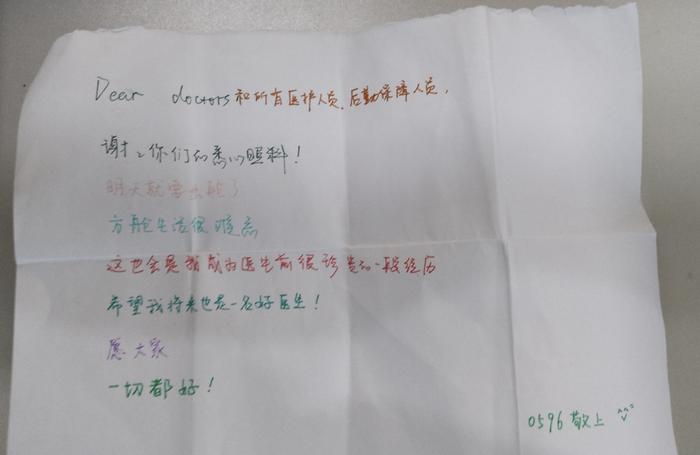 Dear doctors和所有医护人员、后勤保障人员,
谢谢你们的悉心照料!
明天就要出舱了
方舱生活很难忘
这也会是我成为医生前很珍贵的一段经历
希望我将来也是一名好医生!
愿大家
一切都好!
0596 敬上 ^_^